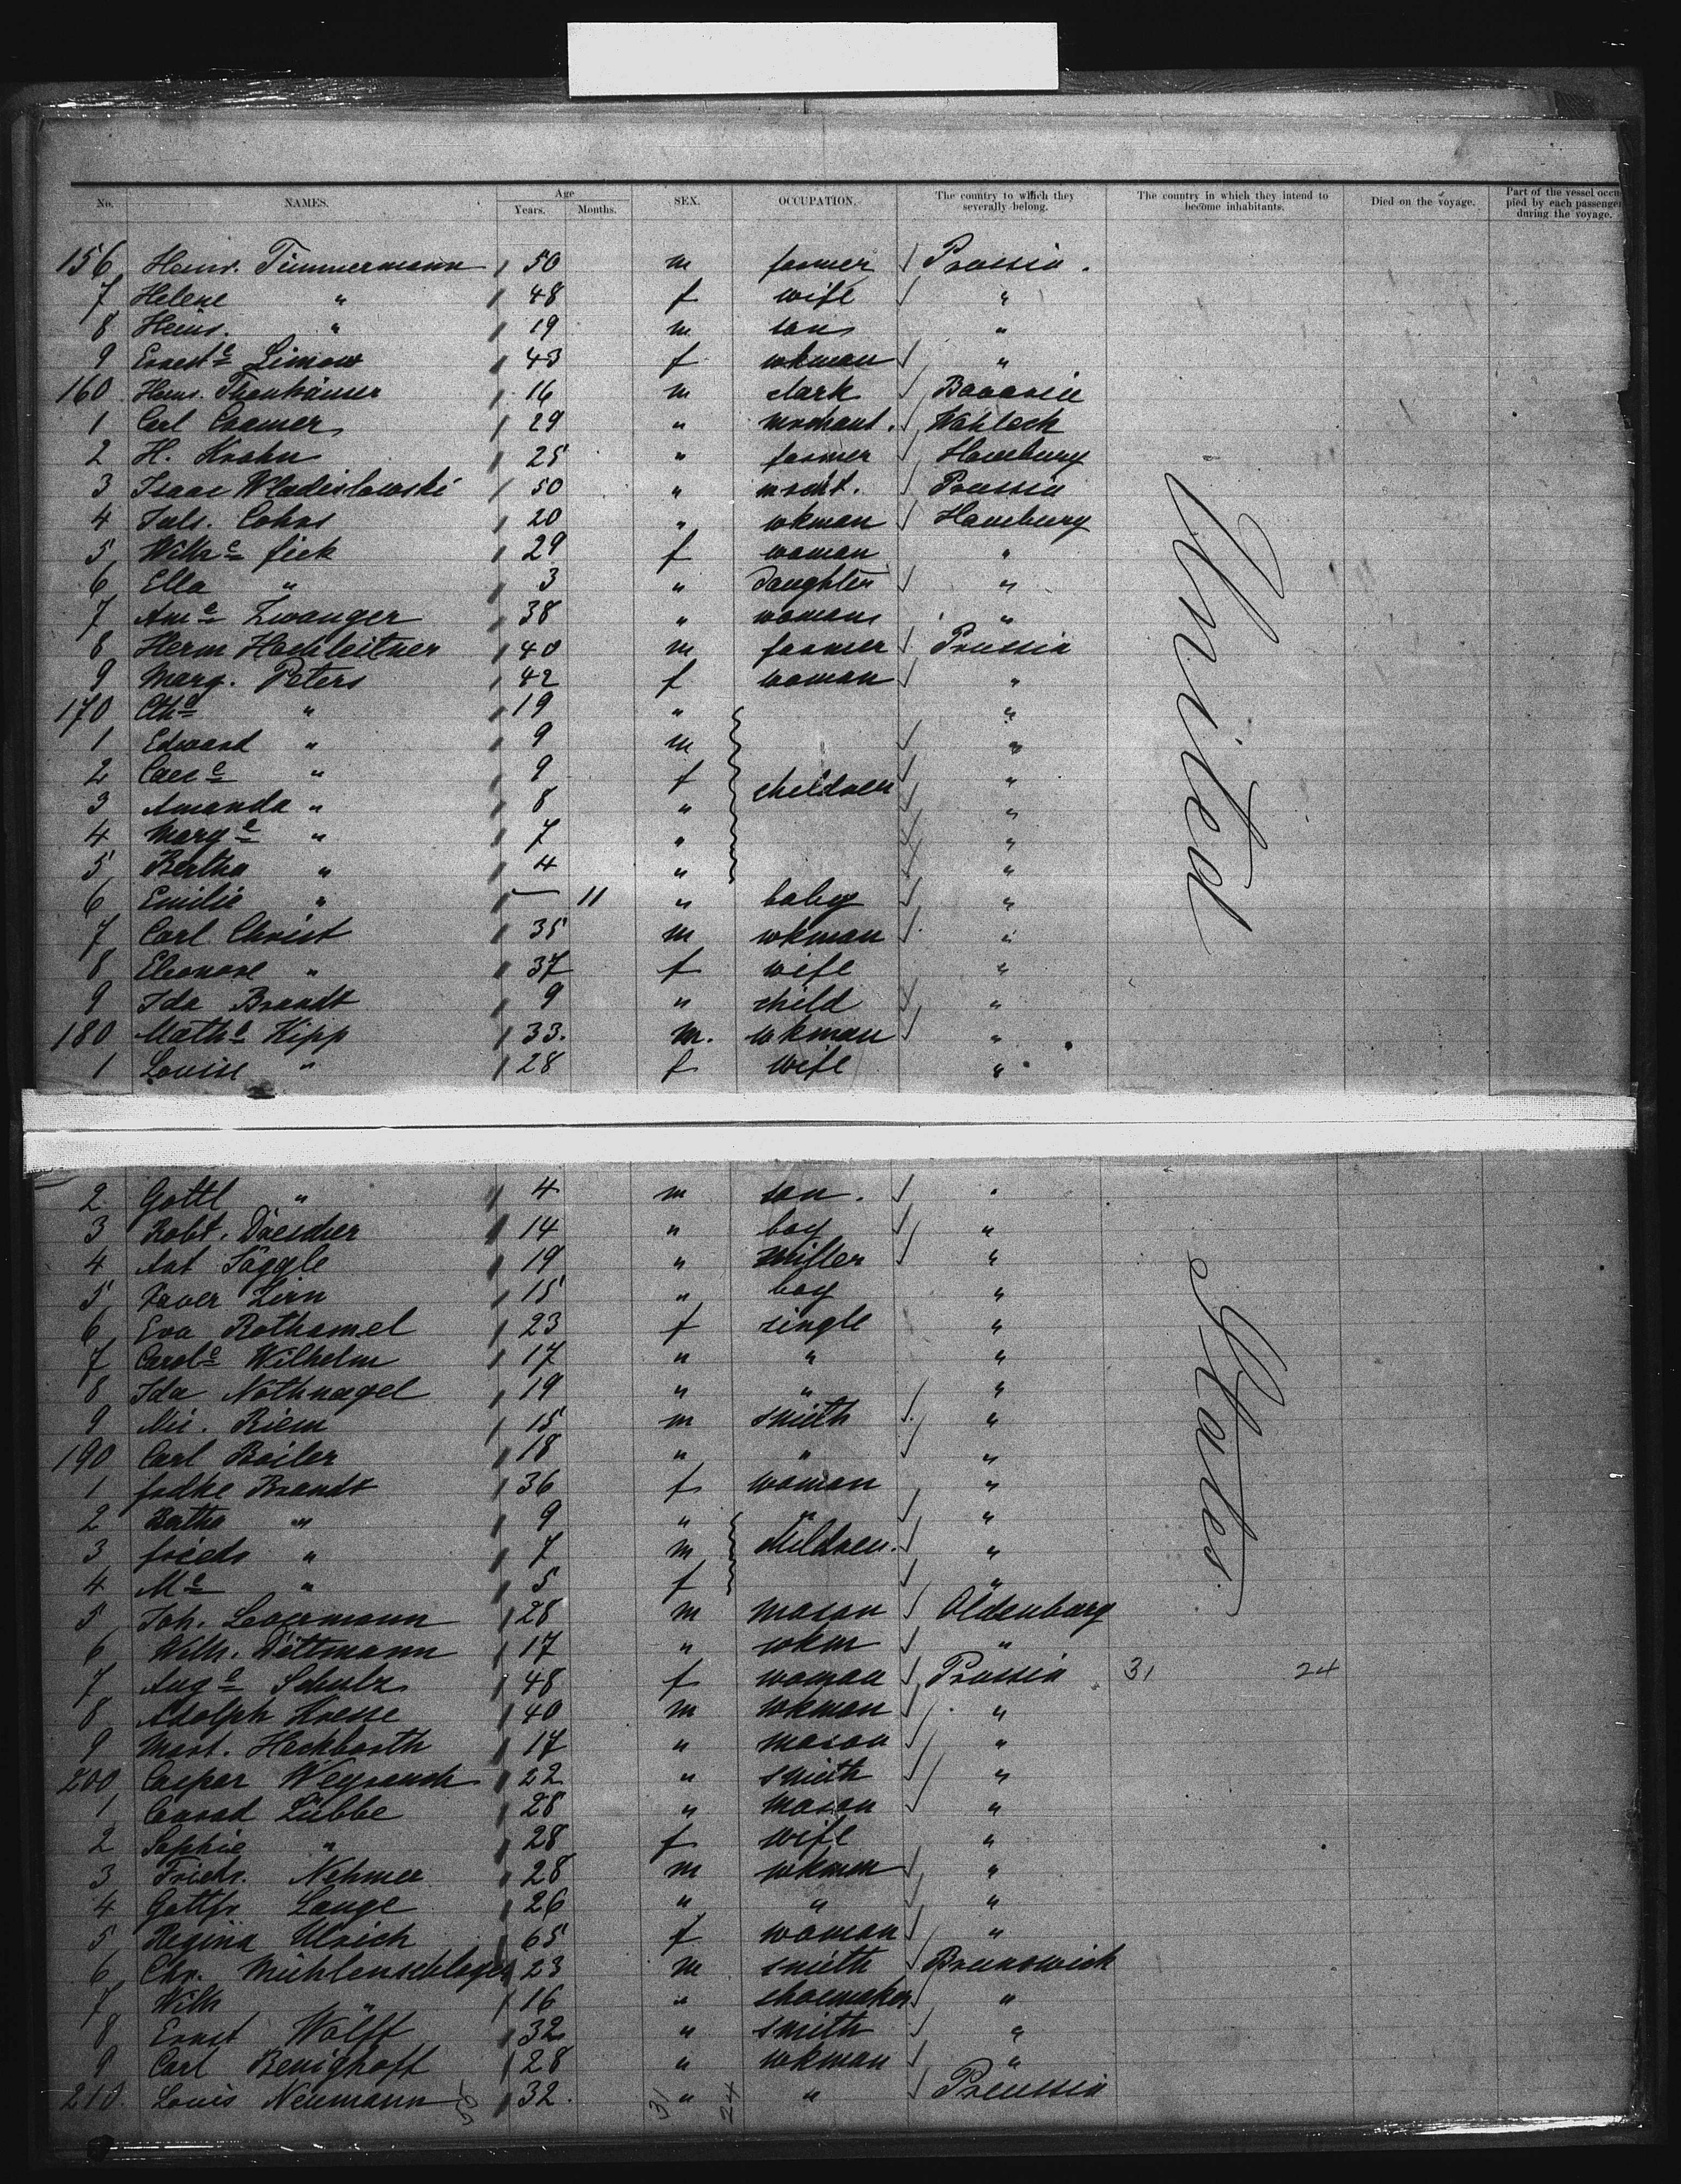 No. NAMES. Age Years. Months. SEX. OCCUPATION. The country to which they severally belong. The country in which they intend to become inhabitants. Died on the voyage. Part of the vessel occupied by each passenger during the voyage.
156 Heinr. Timmermann 50 m farmer Prussia.
7 Helene " 48 f wife "
8 Heinr. " 19 m son "
9 Ernest e Limow 43 f wkman "
160 Heinr. 16 m clark Bavaria
1 Carl Cramer 29 " merchant.
2 H. Krohn 25 " farmer Hamburg
3 Isaac Wladislowski 50 " Prussia
4 Juls. Cohns 20 " wkman Hamburg
5 Wilh e fick 29 f woman "
6 Ella " 3 " daughter "
7 Am e Zwanger 38 " woman "
8 Herm Hochleitner 40 m farmer Prussia
9 Marg. Peters 42 f woman "
170 Cth e " 19 " "
1 Edward " 9 m "
2 " 9 f children "
3 Amanda " 8 " "
4 Marg e " 7 " "
5 Bertha " 4 " "
6 Emilie " — 11 " baby "
7 Carl Christ 35 m wkman "
8 Eleonore " 37 f wife "
9 Ida Brandt 9 " child "
180 Math e Kipp 33. m. wkman "
1 Louise " 28 f wife "
United
2 Gottl " 4 m son. "
3 Robt. Drescher 14 " boy "
4 Ant Jäggle 19 " miller "
5 Xaver Zirn 15 " boy "
6 Eva Rothamel 23 f single "
7 Carol e Wilhelm 17 " " "
8 Ida Nothnagel 19 " " "
9 Nic. Riem 15 m smith "
190 Carl Boiler 18 " " "
1 fodke Brandt 36 f woman "
2 Bertha " 9 " "
3 friedr " 7 m children. "
4 M e " 5 f "
5 Joh. 28 m mason Oldenburg
6 Wilh. Dittmann 17 " wkm "
7 Aug e Schulz 48 f woman Prussia 31 24
8 Adolph Kresse 40 m wkman "
9 Mart. Hackbarth 17 " mason "
200 Caspar Weyrauch 22 " smith "
1 Conrad Lübbe 28 " mason "
2 Sophie " 28 f wife "
3 Friedr. Nehmer 28 m wkman "
4 Gottfr Lange 26 " " "
5 Regina Ulrich 65 f woman "
6 Chr. Mühlenschlager 23 m smith Brunswick
7 Wilh " 16 " shoemaker "
8 Ernst Wolff 32 " smith "
9 Carl Benighoff 28 " wkman "
210. Louis Neumann 32. " " Preussia
31 24
States